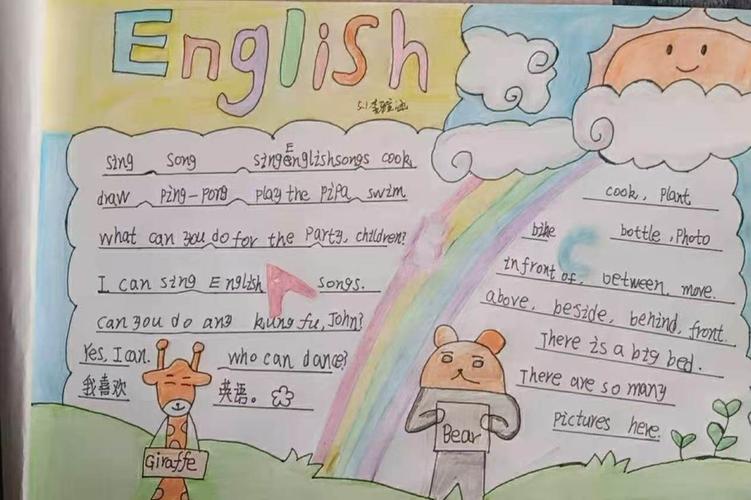 English
5.1
sing song singEnglishsongs cook
draw ping-pong play the pipa swim
what can you do for the party, children?
I can sing English songs.
Can you do any kung fu, John?
Yes, I can. who can dance?
我喜欢 英语。
Giraffe
Bear
cook, plant
bike bottle, photo
infront of, between, move.
above, beside, behind, front
There is a big bed.
There are so many
pictures here.